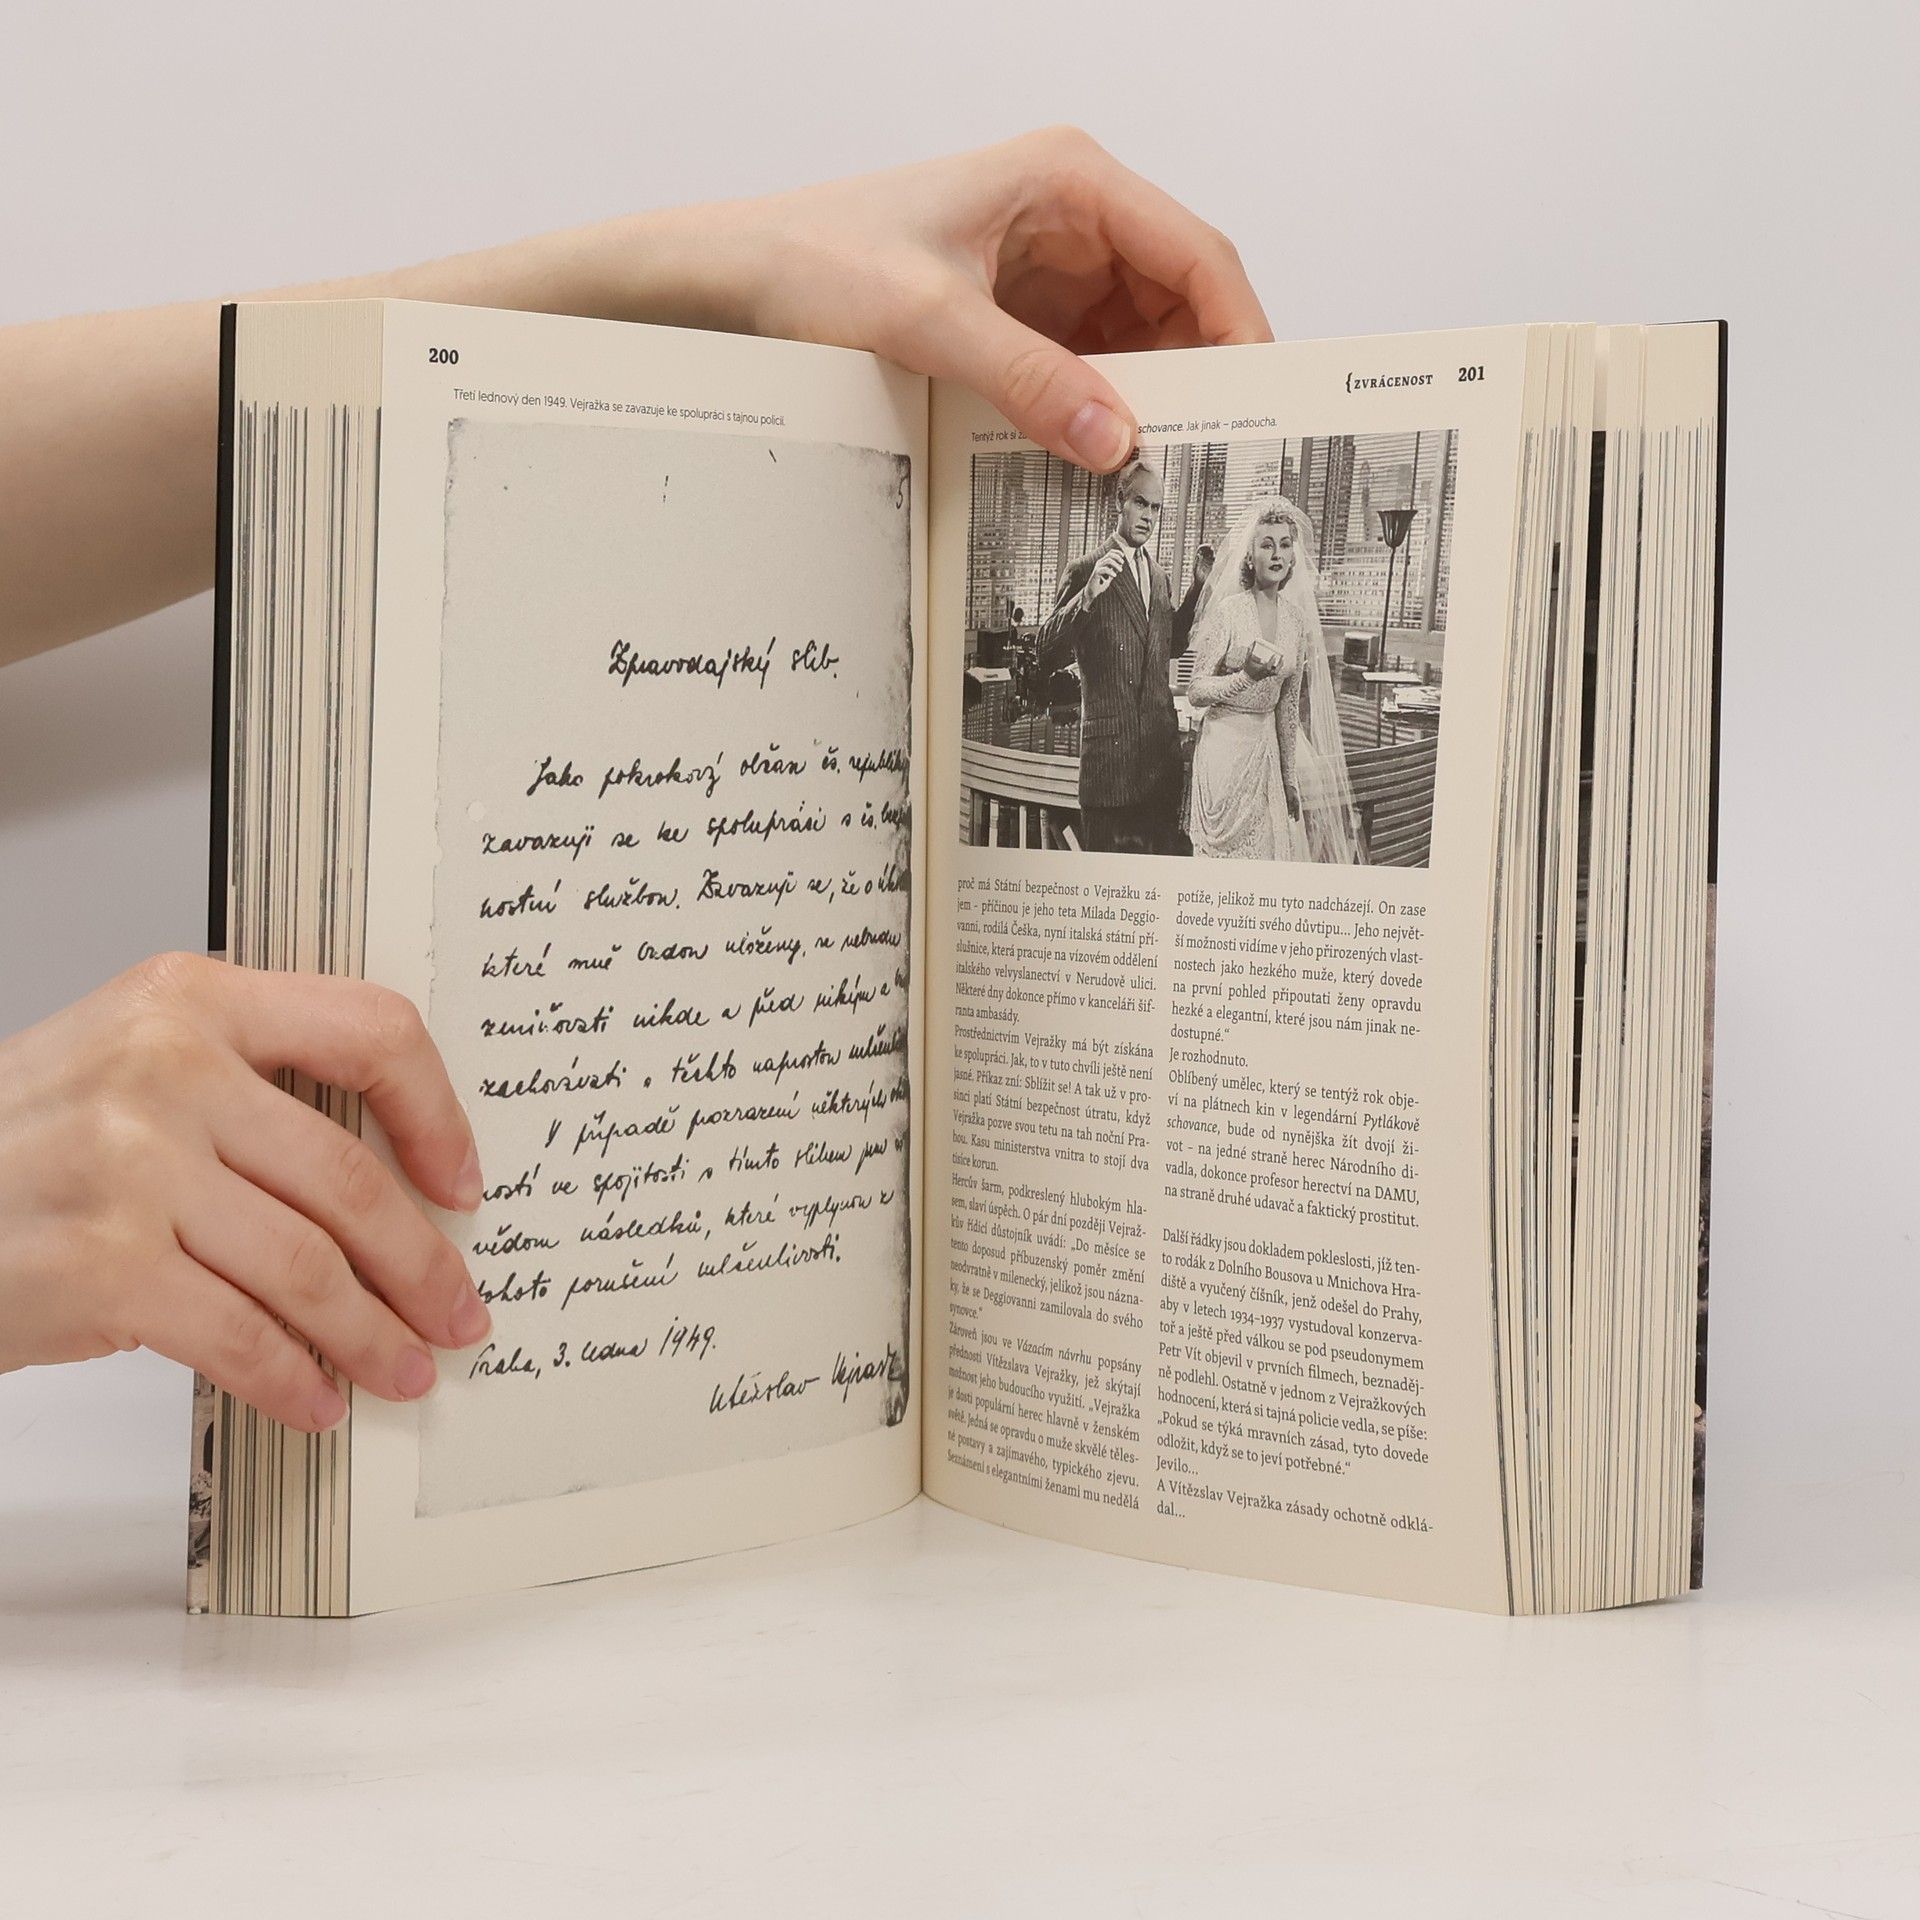 200
Třetí lednový den 1949. Vejražka se zavazuje ke spolupráci s tajnou policií.
5
Zpravodajský slib.
Jako pokrokový občan čs. republiky
zavazuji se ke spolupráci s čs. bezp
nostní službou. Zavazuji se, že o
které mně budou uloženy, se nebudu
zmiňovati nikde a před nikým a
zachovávati o těchto naprostou
V případě prozrazení některých
ností ve spojitosti s tímto slibem jsem si
vědom následků, které vyplynou z
tohoto porušení mlčenlivosti.
Praha, 3. ledna 1949.
Vítězslav Vejraž
{ZVRÁCENOST 201
Tentýž rok si schovance. Jak jinak – padoucha.
proč má Státní bezpečnost o Vejražku zá-
jem - příčinou je jeho teta Milada Deggio-
vanni, rodilá Češka, nyní italská státní pří-
slušnice, která pracuje na vízovém oddělení
italského velvyslanectví v Nerudově ulici.
Některé dny dokonce přímo v kanceláři šif-
ranta ambasády.
Prostřednictvím Vejražky má být získána
ke spolupráci. Jak, to v tuto chvíli ještě není
jasné. Příkaz zní: Sblížit se! A tak už v pro-
sinci platí Státní bezpečnost útratu, když
Vejražka pozve svou tetu na tah noční Pra-
hou. Kasu ministerstva vnitra to stojí dva
tisíce korun.
Hercův šarm, podkreslený hlubokým hla-
sem, slaví úspěch. O pár dní později Vejraž-
kův řídící důstojník uvádí: „Do měsíce se
tento doposud příbuzenský poměr změní
neodvratně v milenecký, jelikož jsou názna-
ky, že se Deggiovanni zamilovala do svého
synovce.“
Zároveň jsou ve Vázacím návrhu popsány
přednosti Vítězslava Vejražky, jež skýtají
možnost jeho budoucího využití. „Vejražka
je dosti populární herec hlavně v ženském
světě. Jedná se opravdu o muže skvělé těles-
né postavy a zajímavého, typického zjevu.
Seznámení s elegantními ženami mu nedělá
potíže, jelikož mu tyto nadcházejí. On zase
dovede využíti svého důvtipu... Jeho největ-
ší možnosti vidíme v jeho přirozených vlast-
nostech jako hezkého muže, který dovede
na první pohled připoutati ženy opravdu
hezké a elegantní, které jsou nám jinak ne-
dostupné.“
Je rozhodnuto.
Oblíbený umělec, který se tentýž rok obje-
ví na plátnech kin v legendární Pytlákově
schovance, bude od nynějška žít dvojí ži-
vot – na jedné straně herec Národního di-
vadla, dokonce profesor herectví na DAMU,
na straně druhé udavač a faktický prostitut.
Další řádky jsou dokladem pokleslosti, jíž ten-
to rodák z Dolního Bousova u Mnichova Hra-
diště a vyučený číšník, jenž odešel do Prahy,
aby v letech 1934–1937 vystudoval konzerva-
toř a ještě před válkou se pod pseudonymem
Petr Vít objevil v prvních filmech, beznaděj-
ně podlehl. Ostatně v jednom z Vejražkových
hodnocení, která si tajná policie vedla, se píše:
„Pokud se týká mravních zásad, tyto dovede
odložit, když se to jeví potřebné.“
Jevilo...
A Vítězslav Vejražka zásady ochotně odklá-
dal...